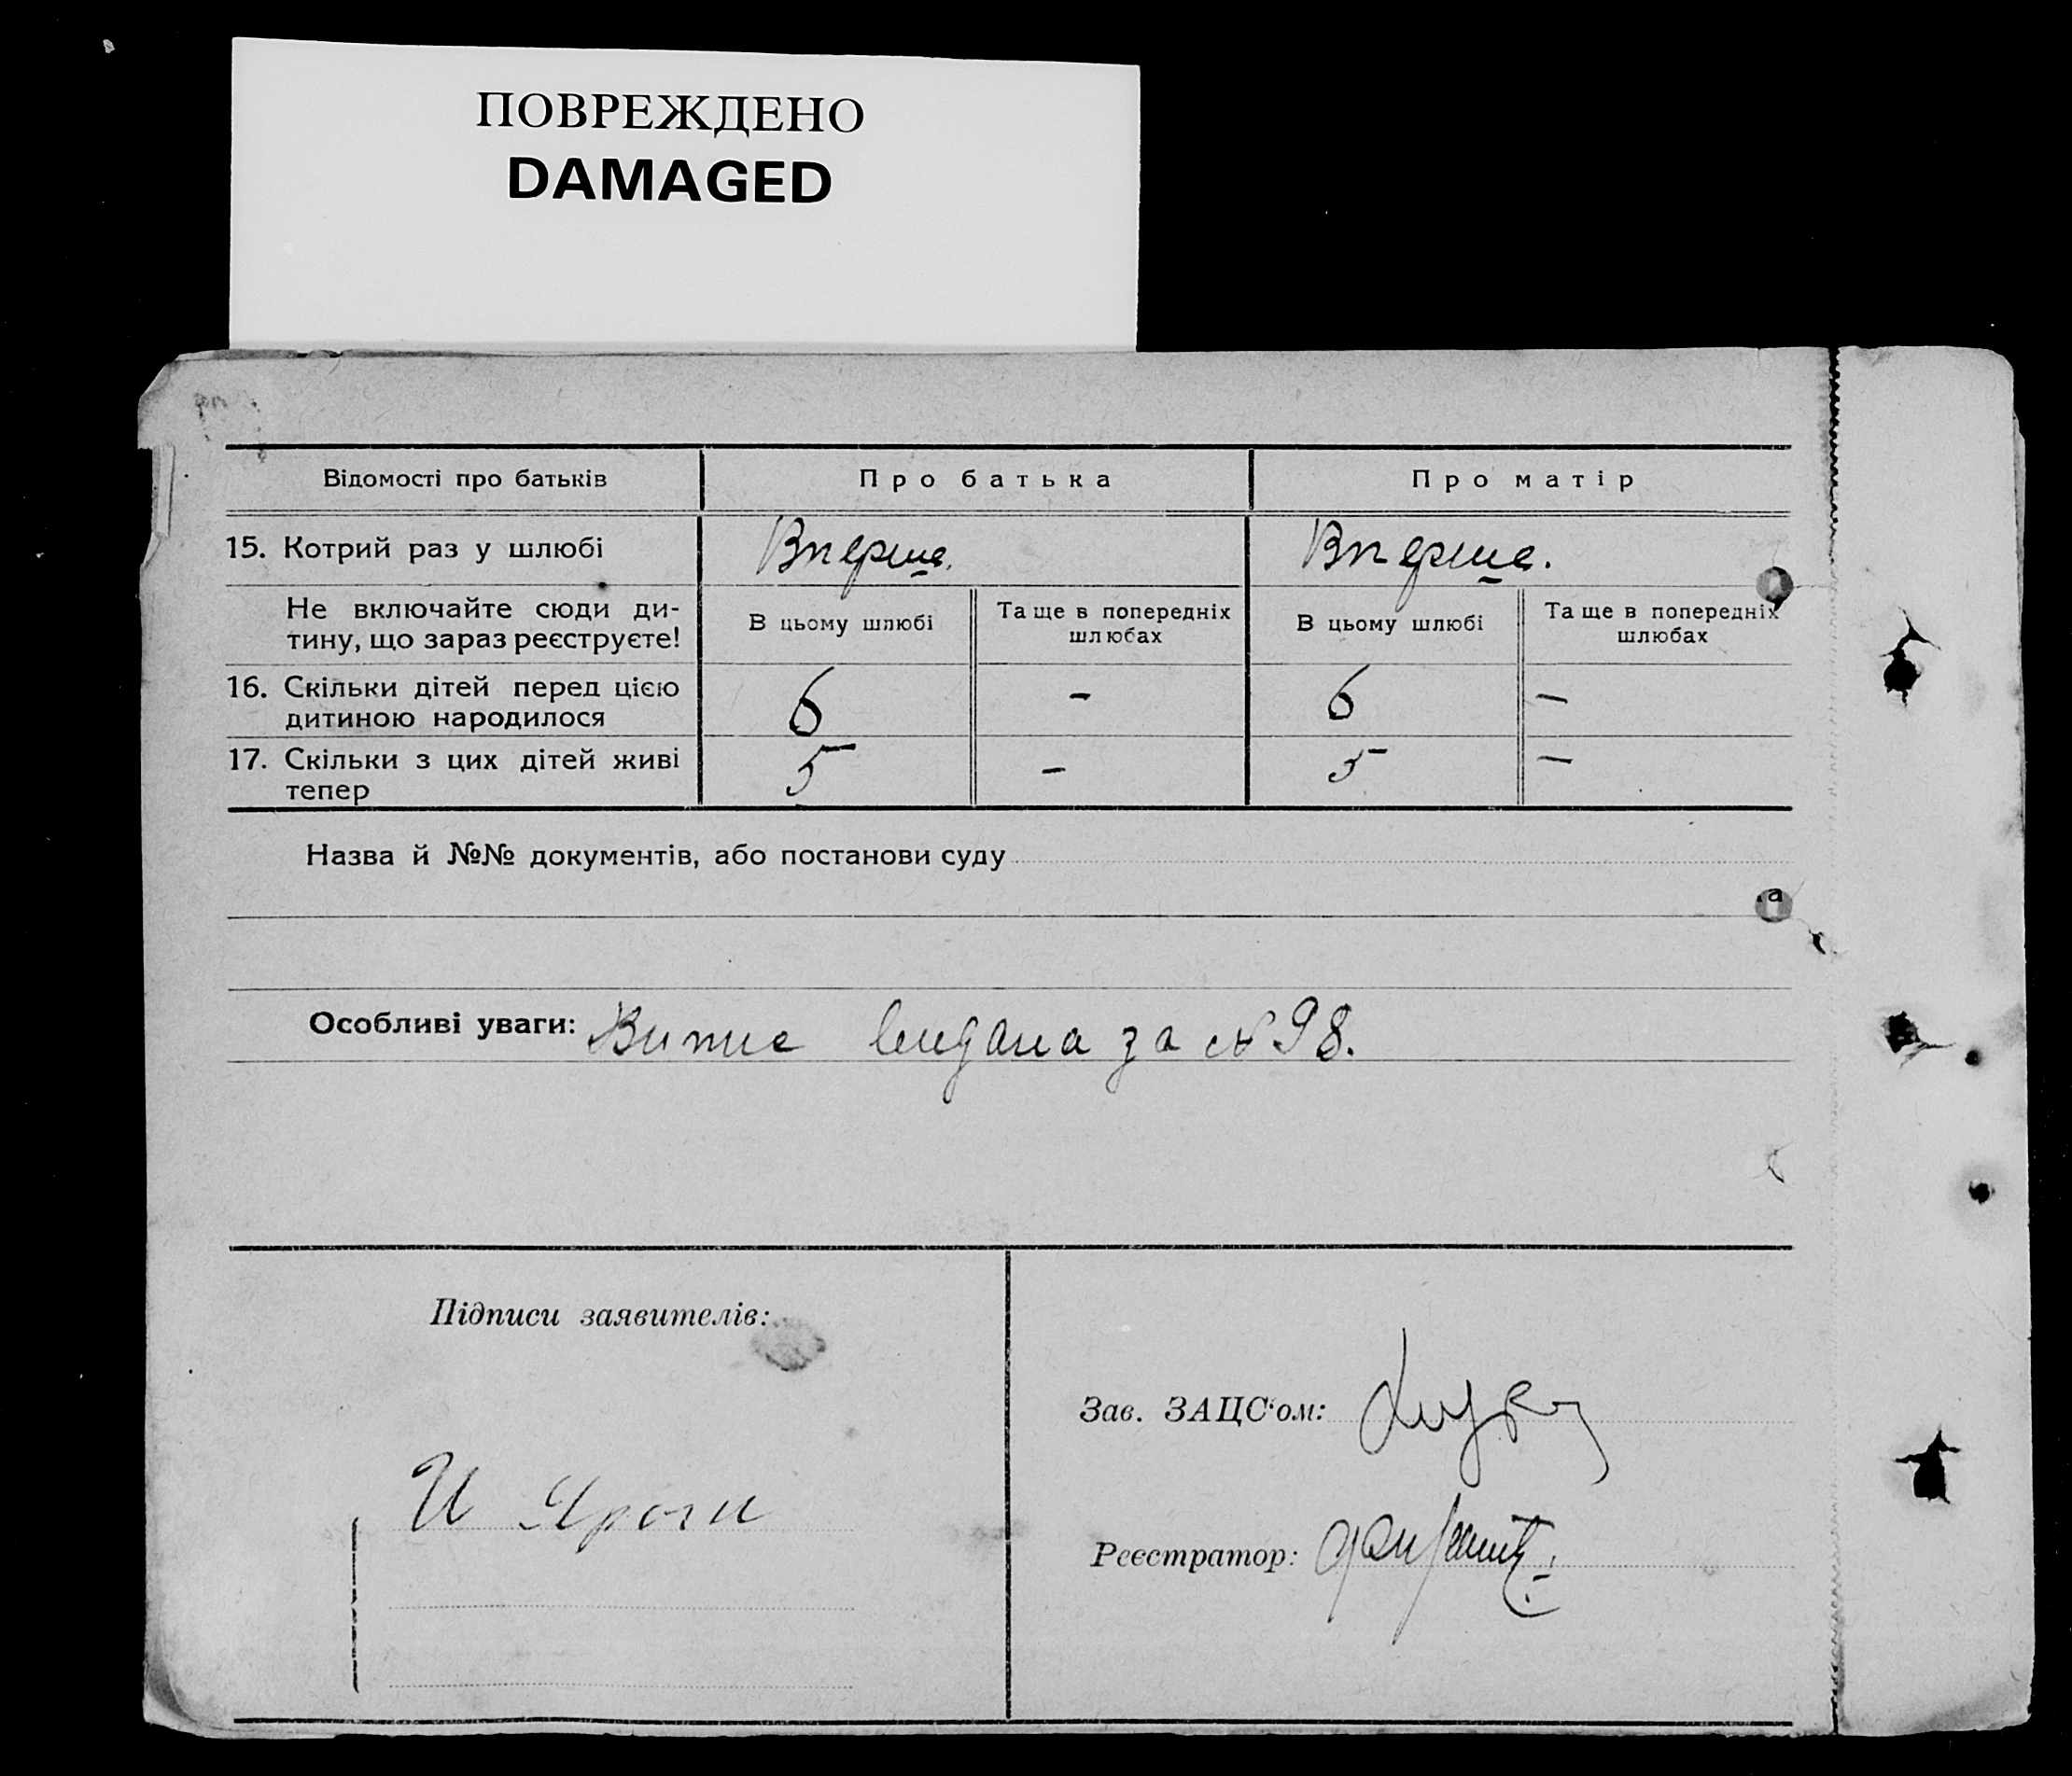 ПОВРЕЖДЕНО
DAMAGED
Відомості про батьків
Про батька
Про матір
15. Котрий раз у шлюбі
Вперше.
Вперше.
Не включайте сюди ди-
тину, що зараз реєструєте!
В цьому шлюбі
Та ще в попередніх
шлюбах
В цьому шлюбі
Та ще в попередніх
шлюбах
16. Скільки дітей перед цією
дитиною народилося
6
-
6
-
17. Скільки з цих дітей живі
тепер
5
-
5
-
Назва й №№ документів, або постанови суду
Особливі уваги: Випис видана за №98.
Підписи заявителів:
Зав. ЗАЦС'ом:
И
Реєстратор: